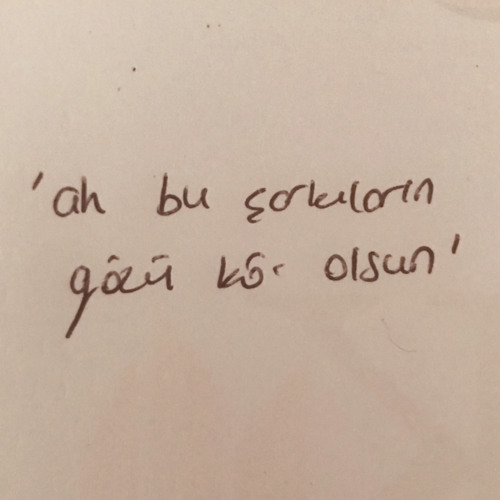 'ah bu şarkıların
gözü kör olsun'